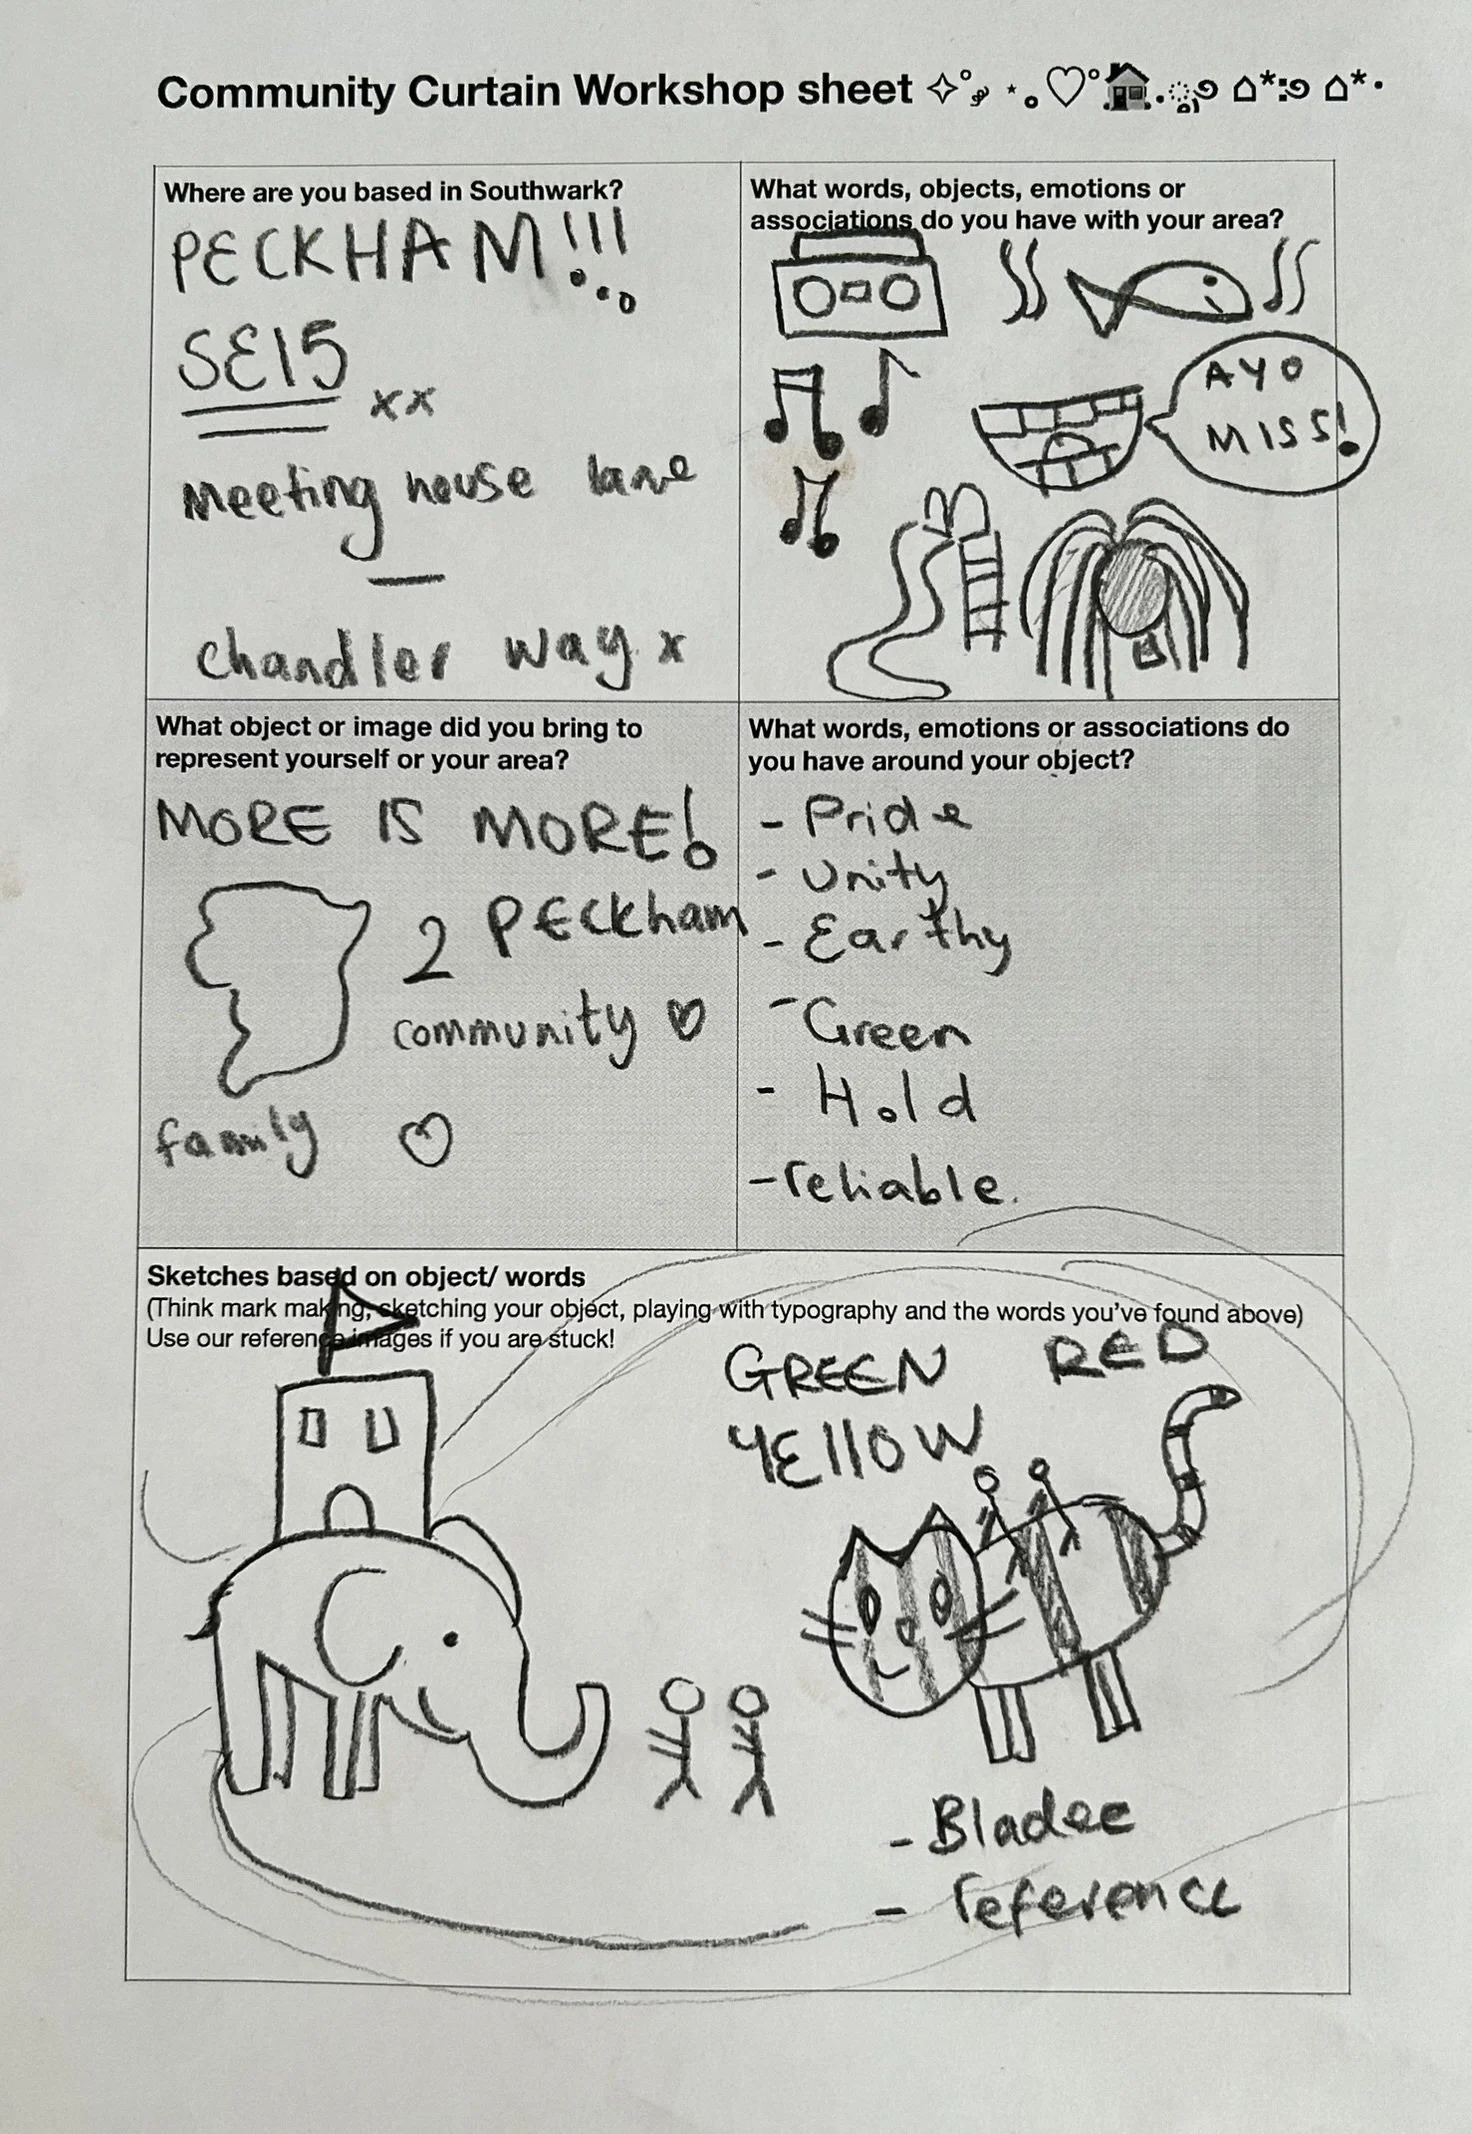 Community Curtain Workshop sheet
Where are you based in Southwark?
PECKHAM!!!
SE15
xx
Meeting house lane
chandler way x
What words, objects, emotions or
associations do you have with your area?
AYO
MISS!
What object or image did you bring to
represent yourself or your area?
MORE IS MORE!
2 PEckham
community ♡
family ♡
What words, emotions or associations do
you have around your object?
- Pride
- Unity
- Earthy
- Green
- Hold
- reliable.
Sketches based on object/ words
(Think mark making, sketching your object, playing with typography and the words you've found above)
Use our reference images if you are stuck!
GREEN RED
YEllOW
- Bladee
- reference